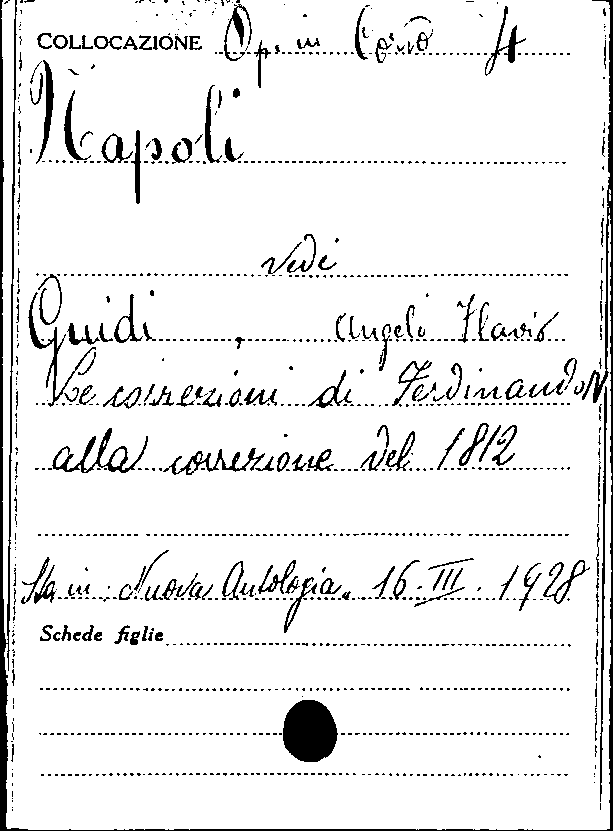 COLLOCAZIONE Op. in Corso 4
Napoli
vedi
Guidi, Angelo Flavio
Le correzioni di Ferdinando IV
alla correzione del 1812
Sta in: Nuova Antologia. 16. III. 1928
Schede figlie